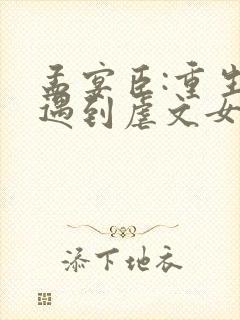 孟宴臣:重生
遇到虐文女
添下地衣